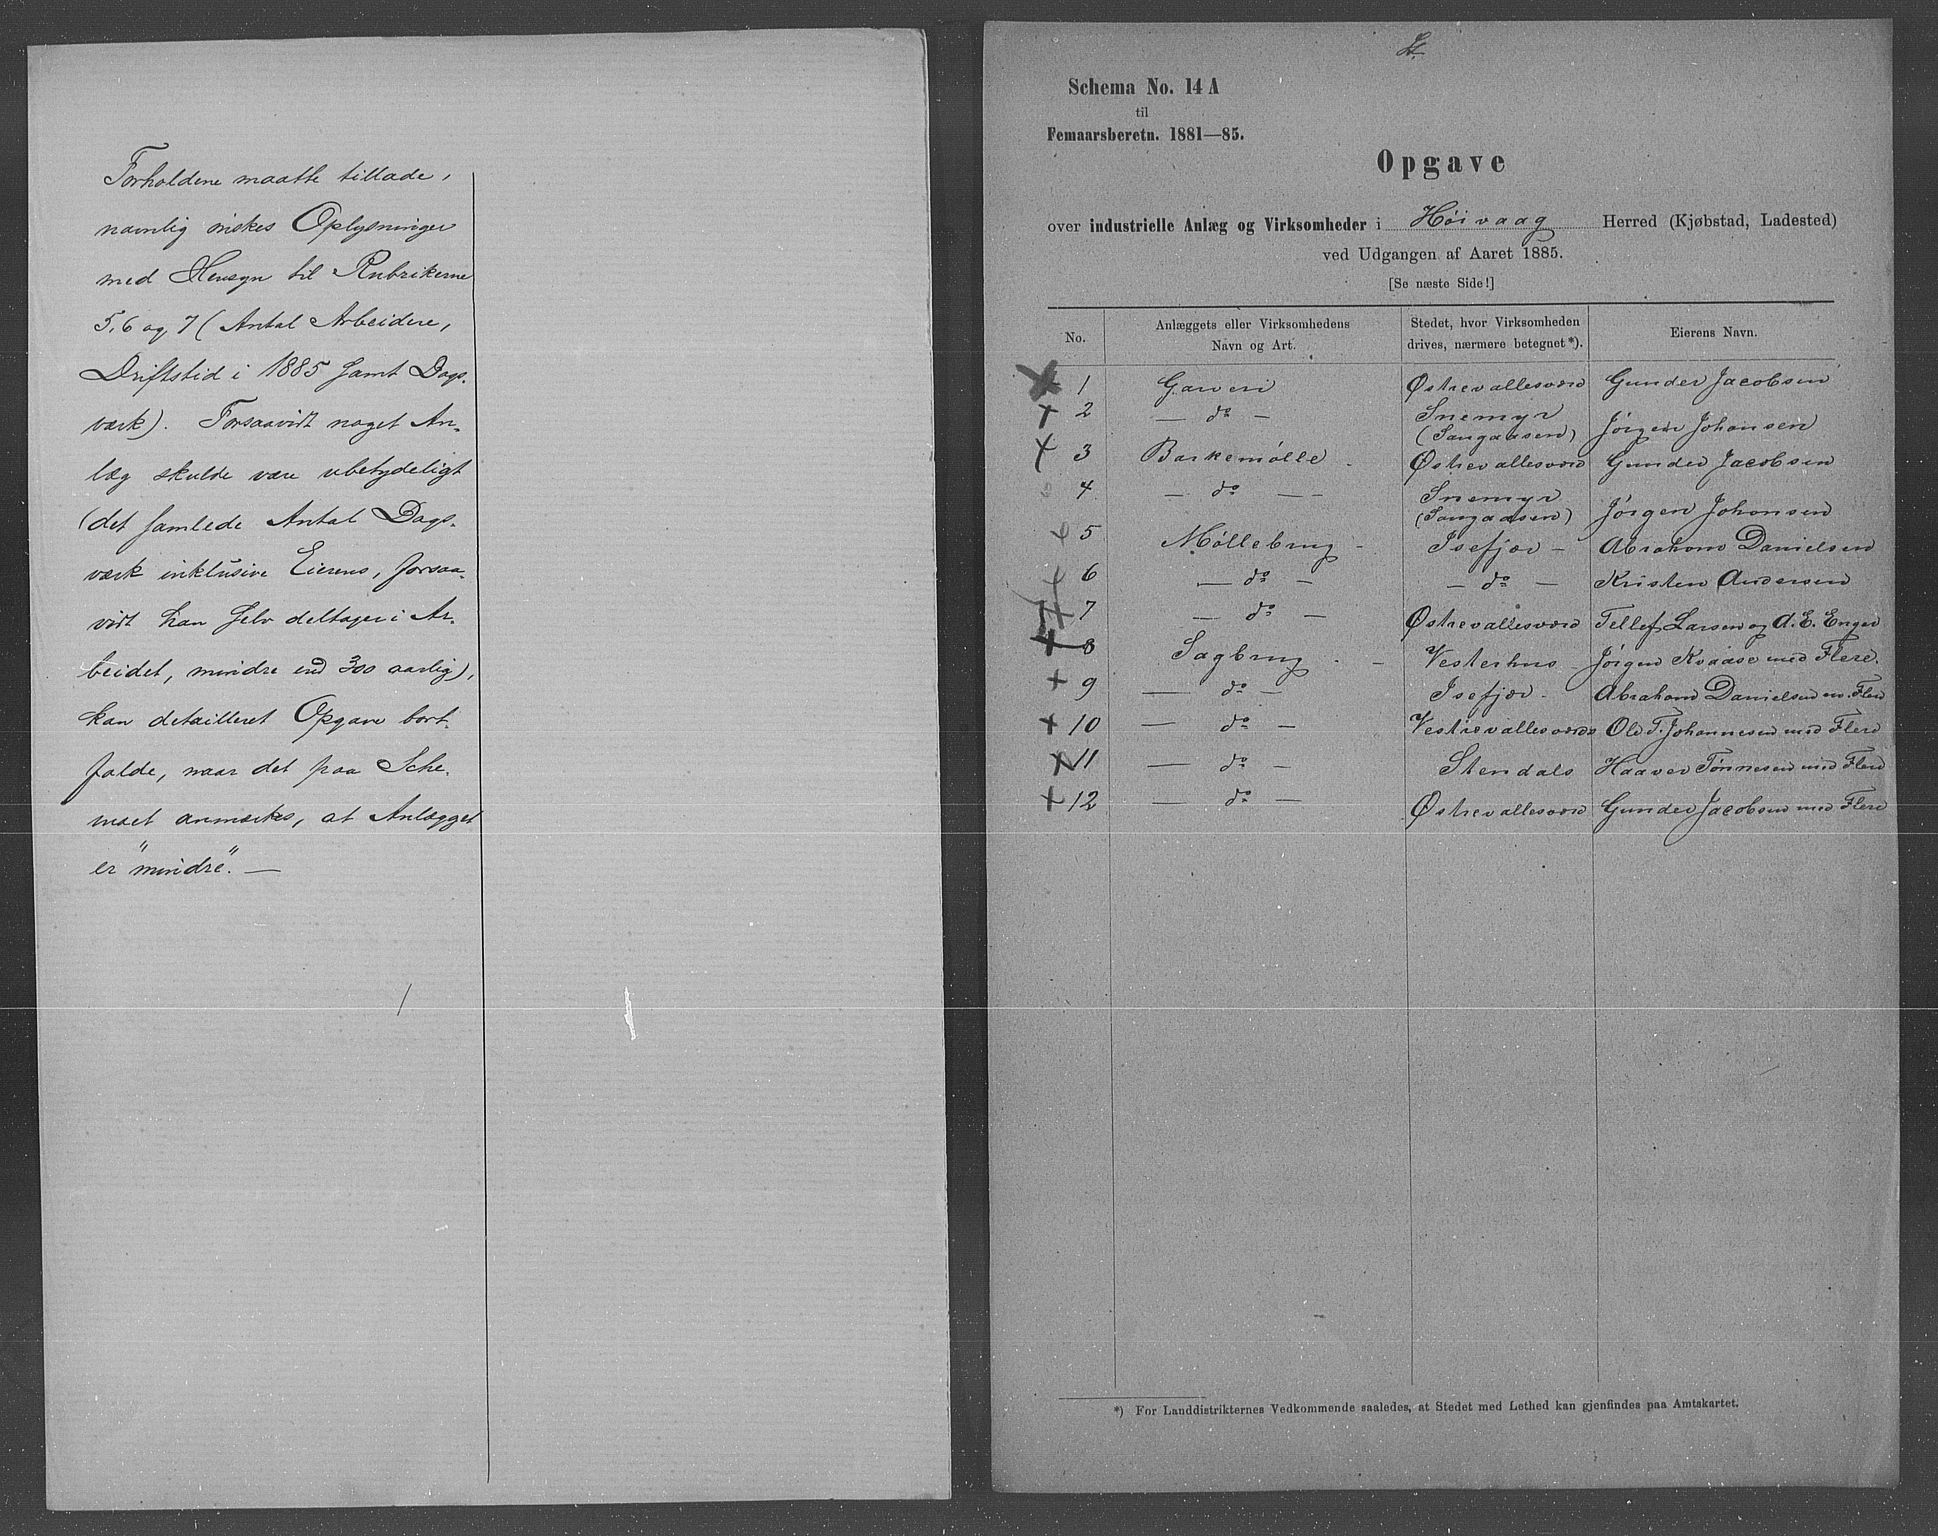 Forholdene maatte tillade,
navnlig ønskes Oplysninger
med Hensyn til Rubrikerne
5, 6 og 7 (Antal Arbeidere,
Driftstid i 1885 samt Dags-
værk). Forsaavidt noget An-
læg skulde være ubetydeligt
(det samlede Antal Dags-
værk inklusive Eierens, forsaa-
vidt han selv deltager i Ar-
beidet, mindre end 300 aarlig),
kan detailleret Opgave bort-
falde, naar det paa Sche-
maet anmærkes, at Anlægget
er "mindre". —
Schema No. 14 A
til
Femaarsberetn. 1881—85.
Opgave
over industrielle Anlæg og Virksomheder i Høivaag Herred (Kjøbstad, Ladested)
ved Udgangen af Aaret 1885.
[Se næste Side!]
No. Anlæggets eller Virksomhedens Navn og Art. Stedet, hvor Virksomheden drives, nærmere betegnet*). Eierens Navn.
1 Garveri Østrevallesværd Gunder Jacobsen
2 — do — Snemyr (Sangaasen) Jørgen Johansen
3 Barkemølle Østrevallesværd Gunder Jacobsen
4 — do — Snemyr (Sangaasen) Jørgen Johansen
5 Møllebrug Isefjær Abraham Danielsen
6 — do — — do — Kristen Andersen
7 — do — Østrevallesværd Tellef Larsen og A. E. Enger
8 Sagbrug Vesterhus Jørgen Kvaase med Flere.
9 — do — Isefjær Abraham Danielsen m. Flere
10 — do — Vestrevallesværd Ole T. Johannesen med Flere
11 — do — Stendals Haaver Tønnesen med Flere
12 — do — Østrevallesværd Gunder Jacobsen med Flere
*) For Landdistrikternes Vedkommende saaledes, at Stedet med Lethed kan gjenfindes paa Amtskartet.